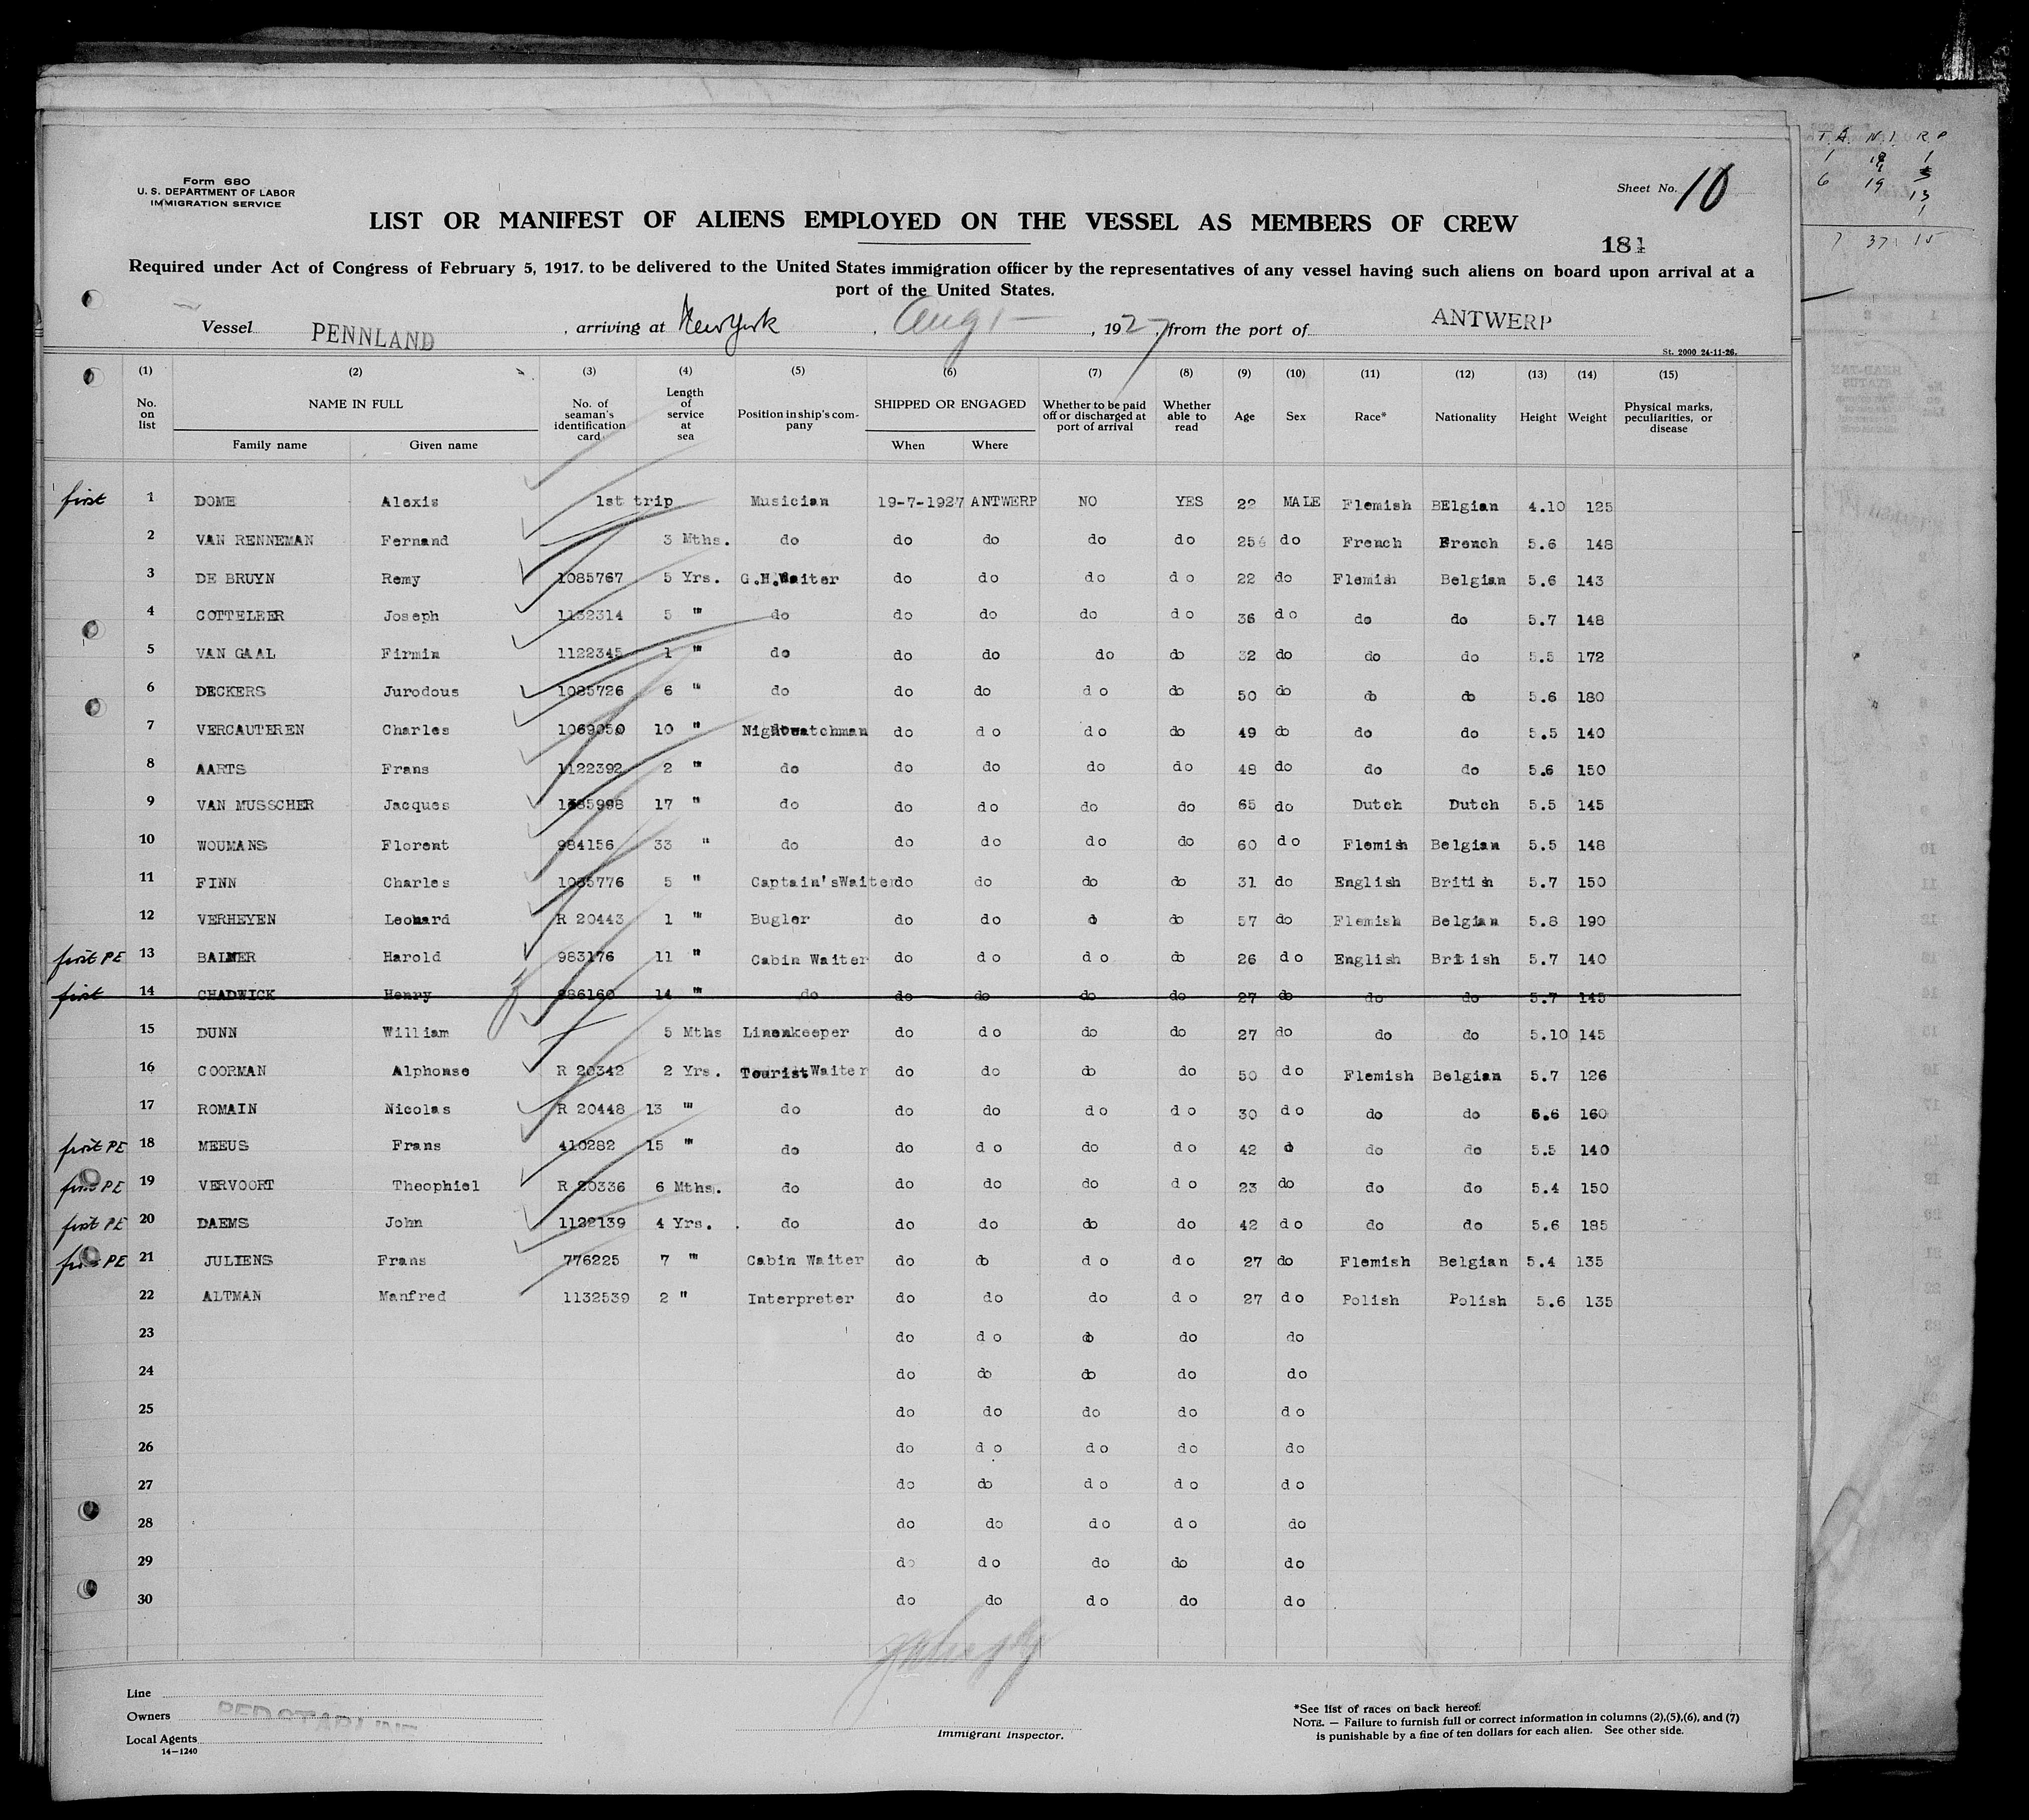 T.A. N.I. R P
1 18 1
6 19 13
1
7 37 15
Form 680
U. S. DEPARTMENT OF LABOR
IMMIGRATION SERVICE
Sheet No. 10
LIST OR MANIFEST OF ALIENS EMPLOYED ON THE VESSEL AS MEMBERS OF CREW
181
Required under Act of Congress of February 5, 1917. to be delivered to the United States immigration officer by the representatives of any vessel having such aliens on board upon arrival at a
port of the United States.
Vessel PENNLAND, arriving at New York, Aug 1, 1927, from the port of ANTWERP
St. 2000 24-11-26.
(1) (2) (3) (4) (5) (6) (7) (8) (9) (10) (11) (12) (13) (14) (15)
No. on list NAME IN FULL No. of seaman's identification card Length of service at sea Position in ship's company SHIPPED OR ENGAGED Whether to be paid off or discharged at port of arrival Whether able to read Age Sex Race* Nationality Height Weight Physical marks, peculiarities, or disease
Family name Given name When Where
first 1 DOME Alexis 1st trip Musician 19-7-1927 ANTWERP NO YES 22 MALE Flemish BElgian 4.10 125
2 VAN RENNEMAN Fernand 3 Mths. do do do do do 25 do French French 5.6 148
3 DE BRUYN Remy 1085767 5 Yrs. G.H.Waiter do do do do 22 do Flemish Belgian 5.6 143
4 COTTELEER Joseph 1132314 5 " do do do do do 36 do do do 5.7 148
5 VAN GAAL Firmin 1122345 1 " do do do do do 32 do do do 5.5 172
6 DECKERS Jurodous 1085726 6 " do do do do do 50 do do do 5.6 180
7 VERCAUTEREN Charles 1069050 10 " Nightwatchman do do do do 49 do do do 5.5 140
8 AARTS Frans 1122392 2 " do do do do do 48 do do do 5.6 150
9 VAN MUSSCHER Jacques 1085998 17 " do do do do do 65 do Dutch Dutch 5.5 145
10 WOUMANS Florent 984156 33 " do do do do do 60 do Flemish Belgian 5.5 148
11 FINN Charles 1085776 5 " Captain'sWaiter do do do do 31 do English British 5.7 150
12 VERHEYEN Leonard R 20443 1 " Bugler do do do do 57 do Flemish Belgian 5.8 190
first PE 13 BALMER Harold 983176 11 " Cabin Waiter do do do do 26 do English British 5.7 140
first 14 CHADWICK Henry 986160 14 " do do do do do 27 do do do 5.7 145
15 DUNN William 5 Mths Linenkeeper do do do do 27 do do do 5.10 145
16 COORMAN Alphonse R 20342 2 Yrs. Tourist Waiter do do do do 50 do Flemish Belgian 5.7 126
17 ROMAIN Nicolas R 20448 13 " do do do do do 30 do do do 5.6 160
first PE 18 MEEUS Frans 410282 15 " do do do do do 42 do do do 5.5 140
first PE 19 VERVOORT Theophiel R 20336 6 Mths. do do do do do 23 do do do 5.4 150
first PE 20 DAEMS John 1122139 4 Yrs. do do do do do 42 do do do 5.6 185
first PE 21 JULIENS Frans 776225 7 " Cabin Waiter do do do do 27 do Flemish Belgian 5.4 135
22 ALTMAN Manfred 1132539 2 " Interpreter do do do do 27 do Polish Polish 5.6 135
23 do do do do do
24 do do do do do
25 do do do do do
26 do do do do do
27 do do do do do
28 do do do do do
29 do do do do do
30 do do do do do
Line
Owners RED STAR LINE
Local Agents
14-1240
Immigrant Inspector.
*See list of races on back hereof.
NOTE. — Failure to furnish full or correct information in columns (2),(5),(6), and (7)
is punishable by a fine of ten dollars for each alien. See other side.